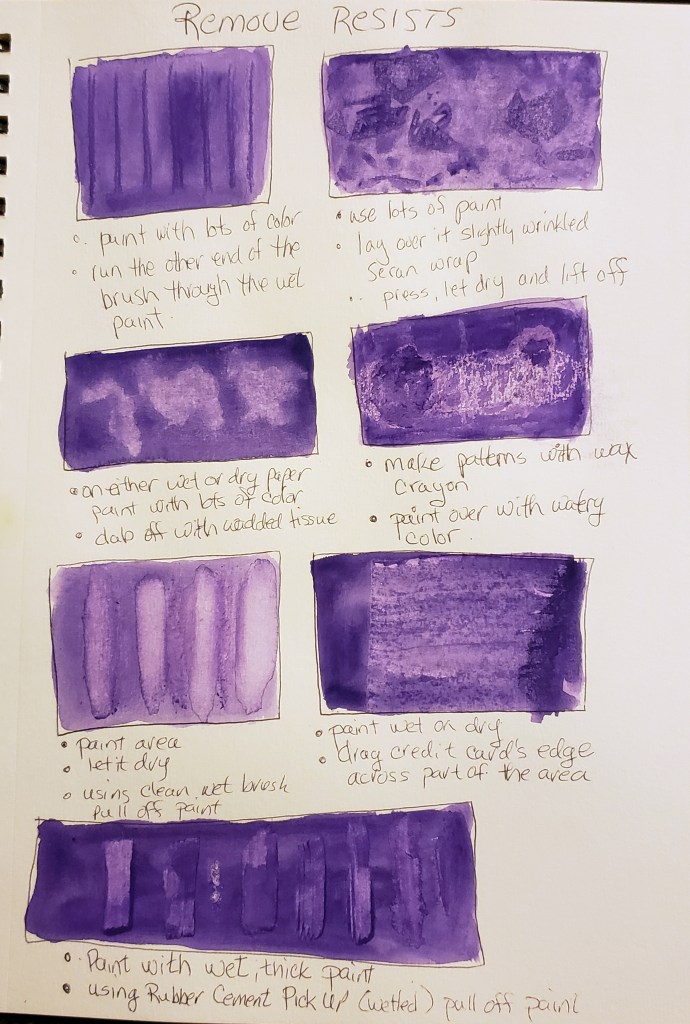 Remove Resists
• paint with lots of color
• run the other end of the
brush through the wet
paint.
• use lots of paint
• lay over it slightly wrinkled
Seran wrap
• press, let dry and lift off
• on either wet or dry paper
paint with lots of color
• dab off with wadded tissue
• make patterns with wax
crayon
• paint over with watery
color.
• paint area
• let it dry
• using clean, wet brush
pull off paint
• paint wet on dry
• drag credit card's edge
across part of the area
• Paint with wet, thick paint
• using Rubber Cement Pick Up (wetted) pull off paint